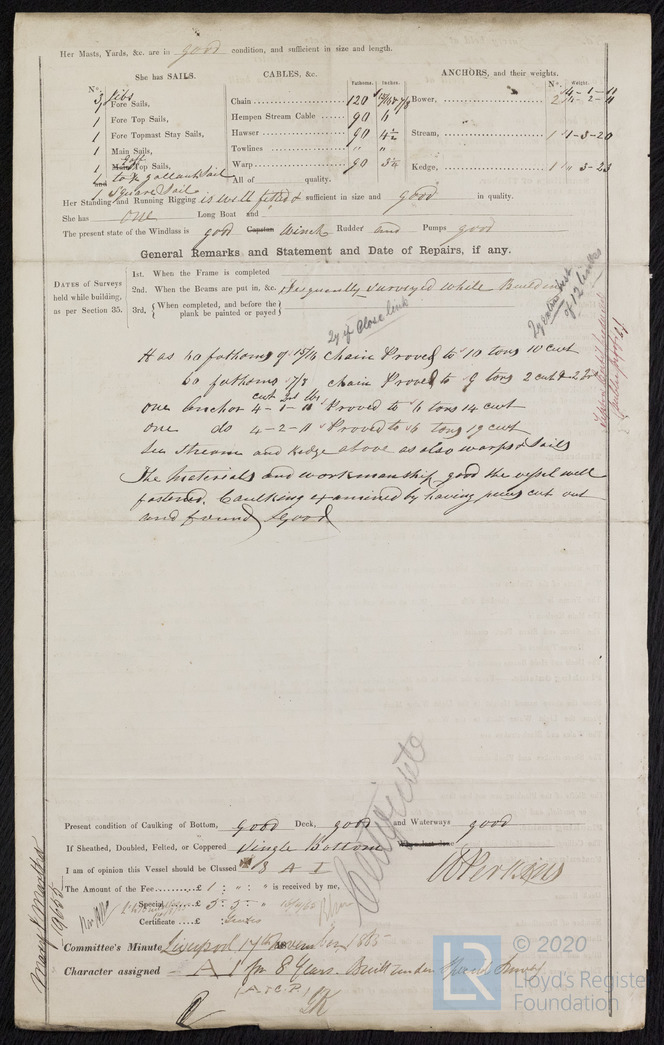 Her Masts, Yards, &c. are in good condition, and sufficient in size and length.
She has SAILS.
CABLES, &c.
ANCHORS, and their weights.
N°.
Fathoms.
Inches.
N°.
Weight.
3 Jibs
1 Fore Sails,
1 Fore Top Sails,
1 Fore Topmast Stay Sails,
1 Main Sails,
1 Main Gaff Top Sails,
and
1 top gallant Sail
1 Square Sail
Chain 120 15/16 & 7/8
Hempen Stream Cable 90 6
Hawser 90 4½
Towlines " "
Warp 90 3¼
All of quality.
Bower, 2 4-1-11
4-2-11
Stream, 1 1-3-20
Kedge, 1 "-3-23
Her Standing and Running Rigging is well fitted & sufficient in size and good in quality.
She has one Long Boat and
The present state of the Windlass is good Capstan Winch Rudder and Pumps good
General Remarks and Statement and Date of Repairs, if any.
DATES of Surveys held while building, as per Section 35.
1st. When the Frame is completed
2nd. When the Beams are put in, &c.
3rd. { When completed, and before the plank be painted or payed }
Frequently surveyed while Building
Qy if Close link
of 12 links
Has 60 fathoms of 15/16 chain Proved to 10 tons 10 cwt
60 fathoms 7/8 chain Proved to 9 tons 2 cwt & 2 qrs
cwt qrs lbs
one anchor 4-1-11 Proved to 6 tons 14 cwt
one do 4-2-11 Proved to 6 tons 19 cwt
See Stream and Kedge above as also warps & Sails
The Materials and workmanship good the vessel well
fastened. Caulking examined by having pieces cut out
and found Good
Present condition of Caulking of Bottom, Good Deck, good and Waterways good
If Sheathed, Doubled, Felted, or Coppered Single Bottom
I am of opinion this Vessel should be Classed 8 A 1
The Amount of the Fee £ 1 : " : " is received by me,
Special £ 5 : 5 : "
Certificate £ : Gratis
Committee's Minute Liverpool 17th November 1865
Character assigned A 1 for 8 Years. Built under Special Survey
(A & C.P.)
© 2020
LR
Lloyd's Register
Foundation